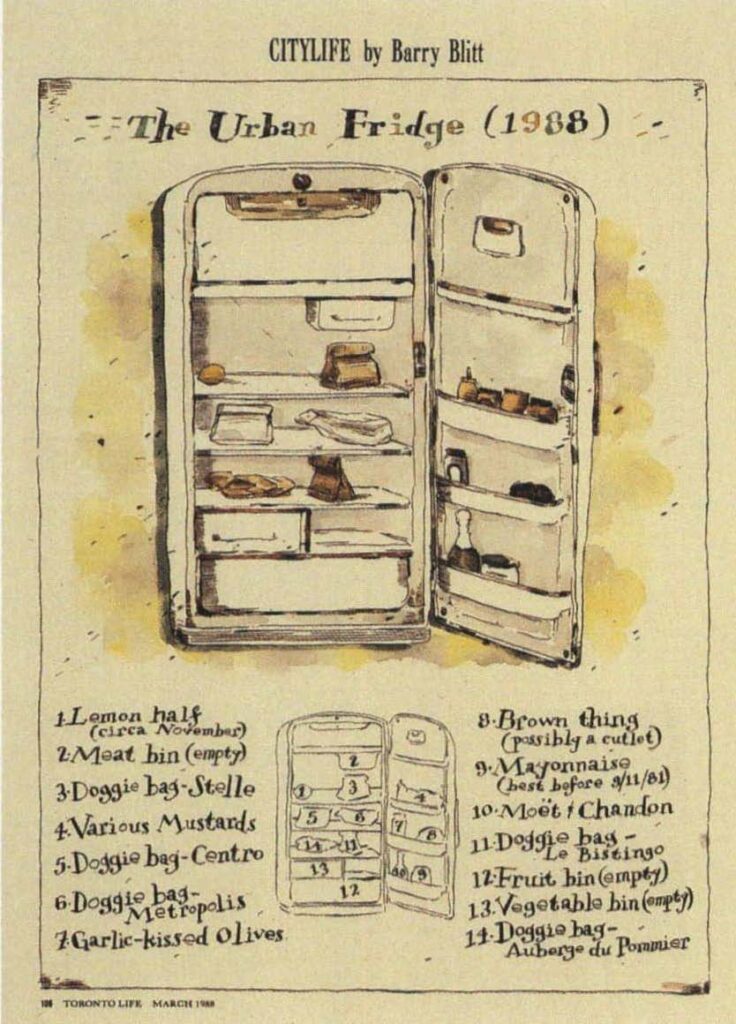 CITYLIFE by Barry Blitt
The Urban Fridge (1988)
1. Lemon half
(circa November)
2. Meat bin (empty)
3. Doggie bag-Stelle
4. Various Mustards
5. Doggie bag-Centro
6. Doggie bag-
Metropolis
7. Garlic-kissed Olives
2
1
3
4
5
6
7
8
14
11
13
10
9
12
8. Brown thing
(possibly a cutlet)
9. Mayonnaise
(best before 9/11/81)
10. Moët & Chandon
11. Doggie bag-
Le Bistingo
12. Fruit bin (empty)
13. Vegetable bin (empty)
14. Doggie bag-
Auberge du Pommier
106 TORONTO LIFE MARCH 1988